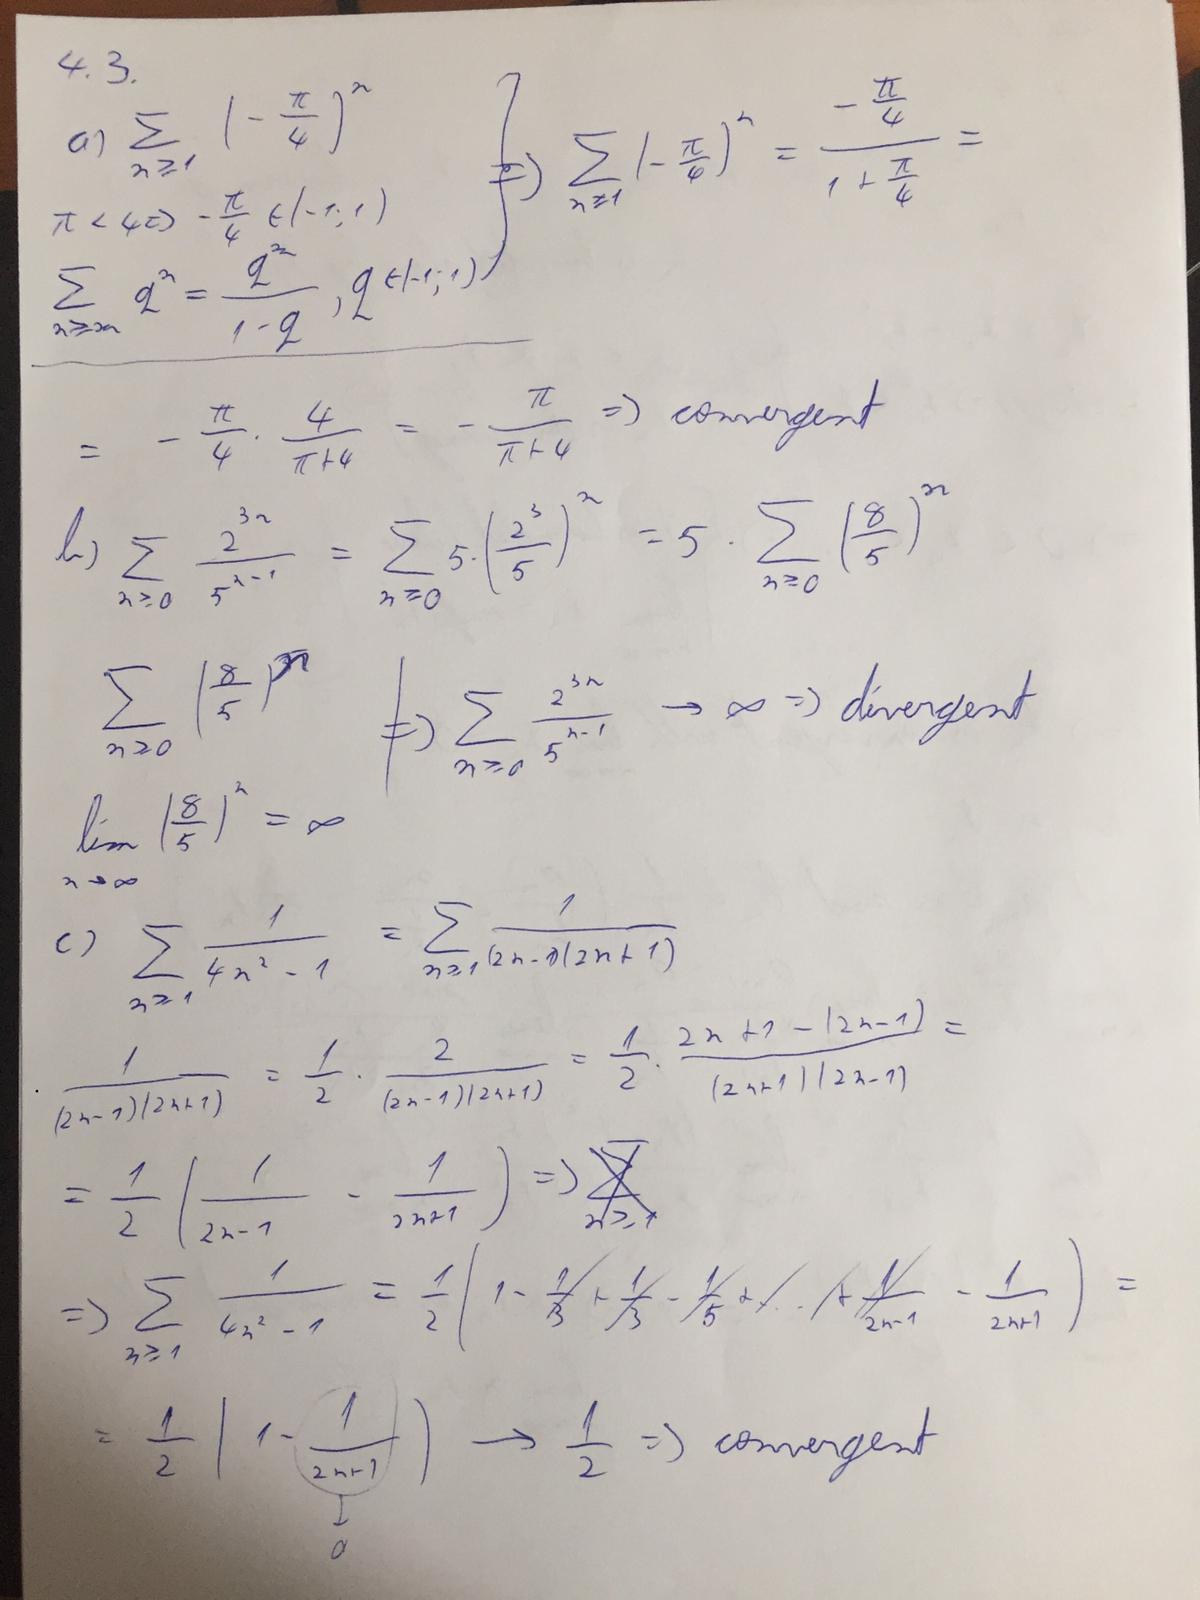 4.3.
a) ∑_{n≥1} (-π/4)^n
π < 4 => -π/4 ∈ (-1; 1)
∑_{n≥m} q^n = q^m/(1-q), q ∈ (-1; 1)
=> ∑_{n≥1} (-π/4)^n = (-π/4)/(1+π/4) =
= -π/4 · 4/(π+4) = -π/(π+4) => convergent
b) ∑_{n≥0} 2^{3n}/5^{n-1} = ∑_{n≥0} 5·(2^3/5)^n = 5 · ∑_{n≥0} (8/5)^n
∑_{n≥0} (8/5)^n
lim_{n→∞} (8/5)^n = ∞
=> ∑_{n≥0} 2^{3n}/5^{n-1} → ∞ => divergent
c) ∑_{n≥1} 1/(4n²-1) = ∑_{n≥1} 1/((2n-1)(2n+1))
1/((2n-1)(2n+1)) = 1/2 · 2/((2n-1)(2n+1)) = 1/2 · (2n+1-(2n-1))/((2n+1)(2n-1)) =
= 1/2 (1/(2n-1) - 1/(2n+1)) => ∑_{n≥1}
=> ∑_{n≥1} 1/(4n²-1) = 1/2 (1 - 1/3 + 1/3 - 1/5 + ... + 1/(2n-1) - 1/(2n+1)) =
= 1/2 (1 - 1/(2n+1)) → 1/2 => convergent
↓
0